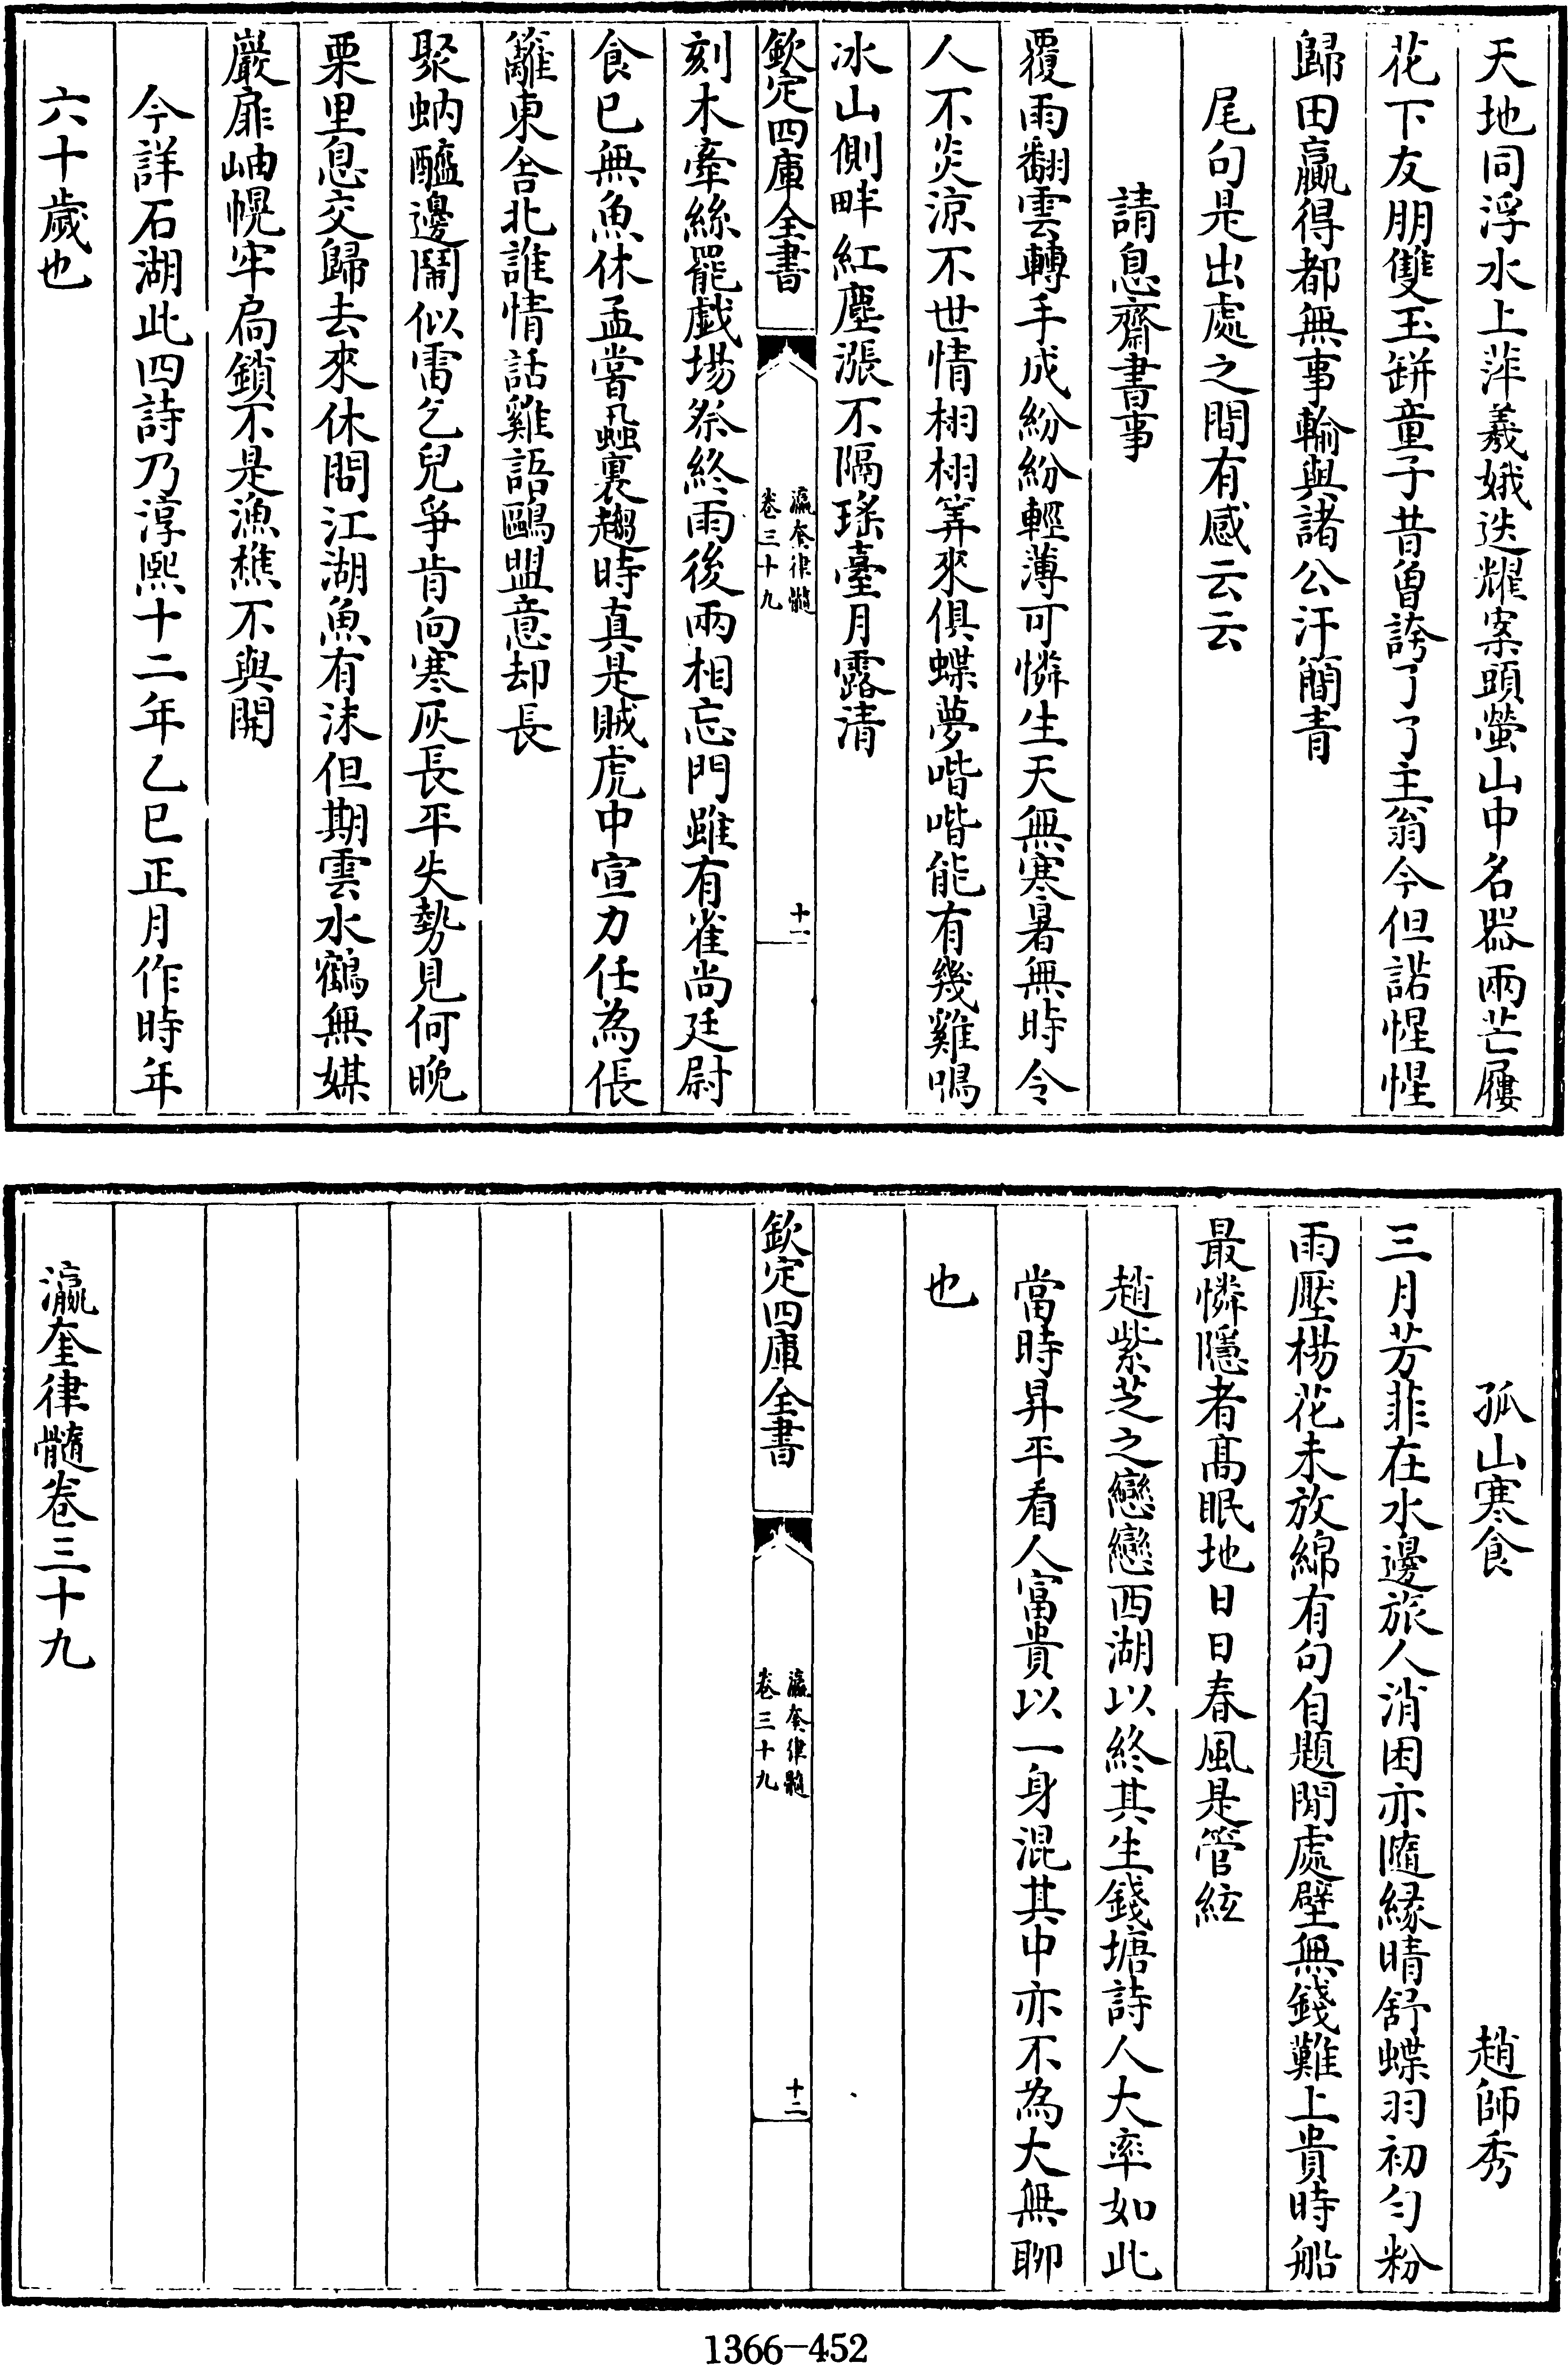 天地同浮水上萍羲娥迭耀案頭螢山中名器兩芒屨
花下友朋雙玉缾童子昔曾誇了了主翁今但諾惺惺
歸田贏得都無事輸與諸公汗簡青
尾句是出處之間有感云云
請息齋書事
覆雨翻雲轉手成紛紛輕薄可憐生天無寒暑無時令
人不炎涼不世情栩栩筭來俱蝶夢喈喈能有幾雞鳴
冰山側畔紅塵漲不隔瑤臺月露清
欽定四庫全書
瀛奎律髓
卷三十九
十一
刻木牽絲罷戲場祭終雨後兩相忘門雖有雀尚廷尉
食已無魚休孟嘗蝨裏趨時真是賊虎中宣力任為倀
籬東舍北誰情話雞語鷗盟意却長
聚蚋醯邊鬧似雷乞兒爭肯向寒灰長平失勢見何晚
栗里息交歸去來休問江湖魚有沫但期雲水鶴無媒
巖扉岫幌牢扃鎖不是漁樵不與開
今詳石湖此四詩乃淳熙十二年乙巳正月作時年
六十歲也
孤山寒食
趙師秀
三月芳菲在水邊旅人消困亦隨緣晴舒蝶羽初勻粉
雨壓楊花未放綿有句自題閒處壁無錢難上貴時船
最憐隱者髙眠地日日春風是管絃
趙紫芝之戀戀西湖以終其生錢塘詩人大率如此
當時昇平看人富貴以一身混其中亦不為大無聊
也
欽定四庫全書
瀛奎律髓
卷三十九
十二
瀛奎律髓卷三十九
1366-452